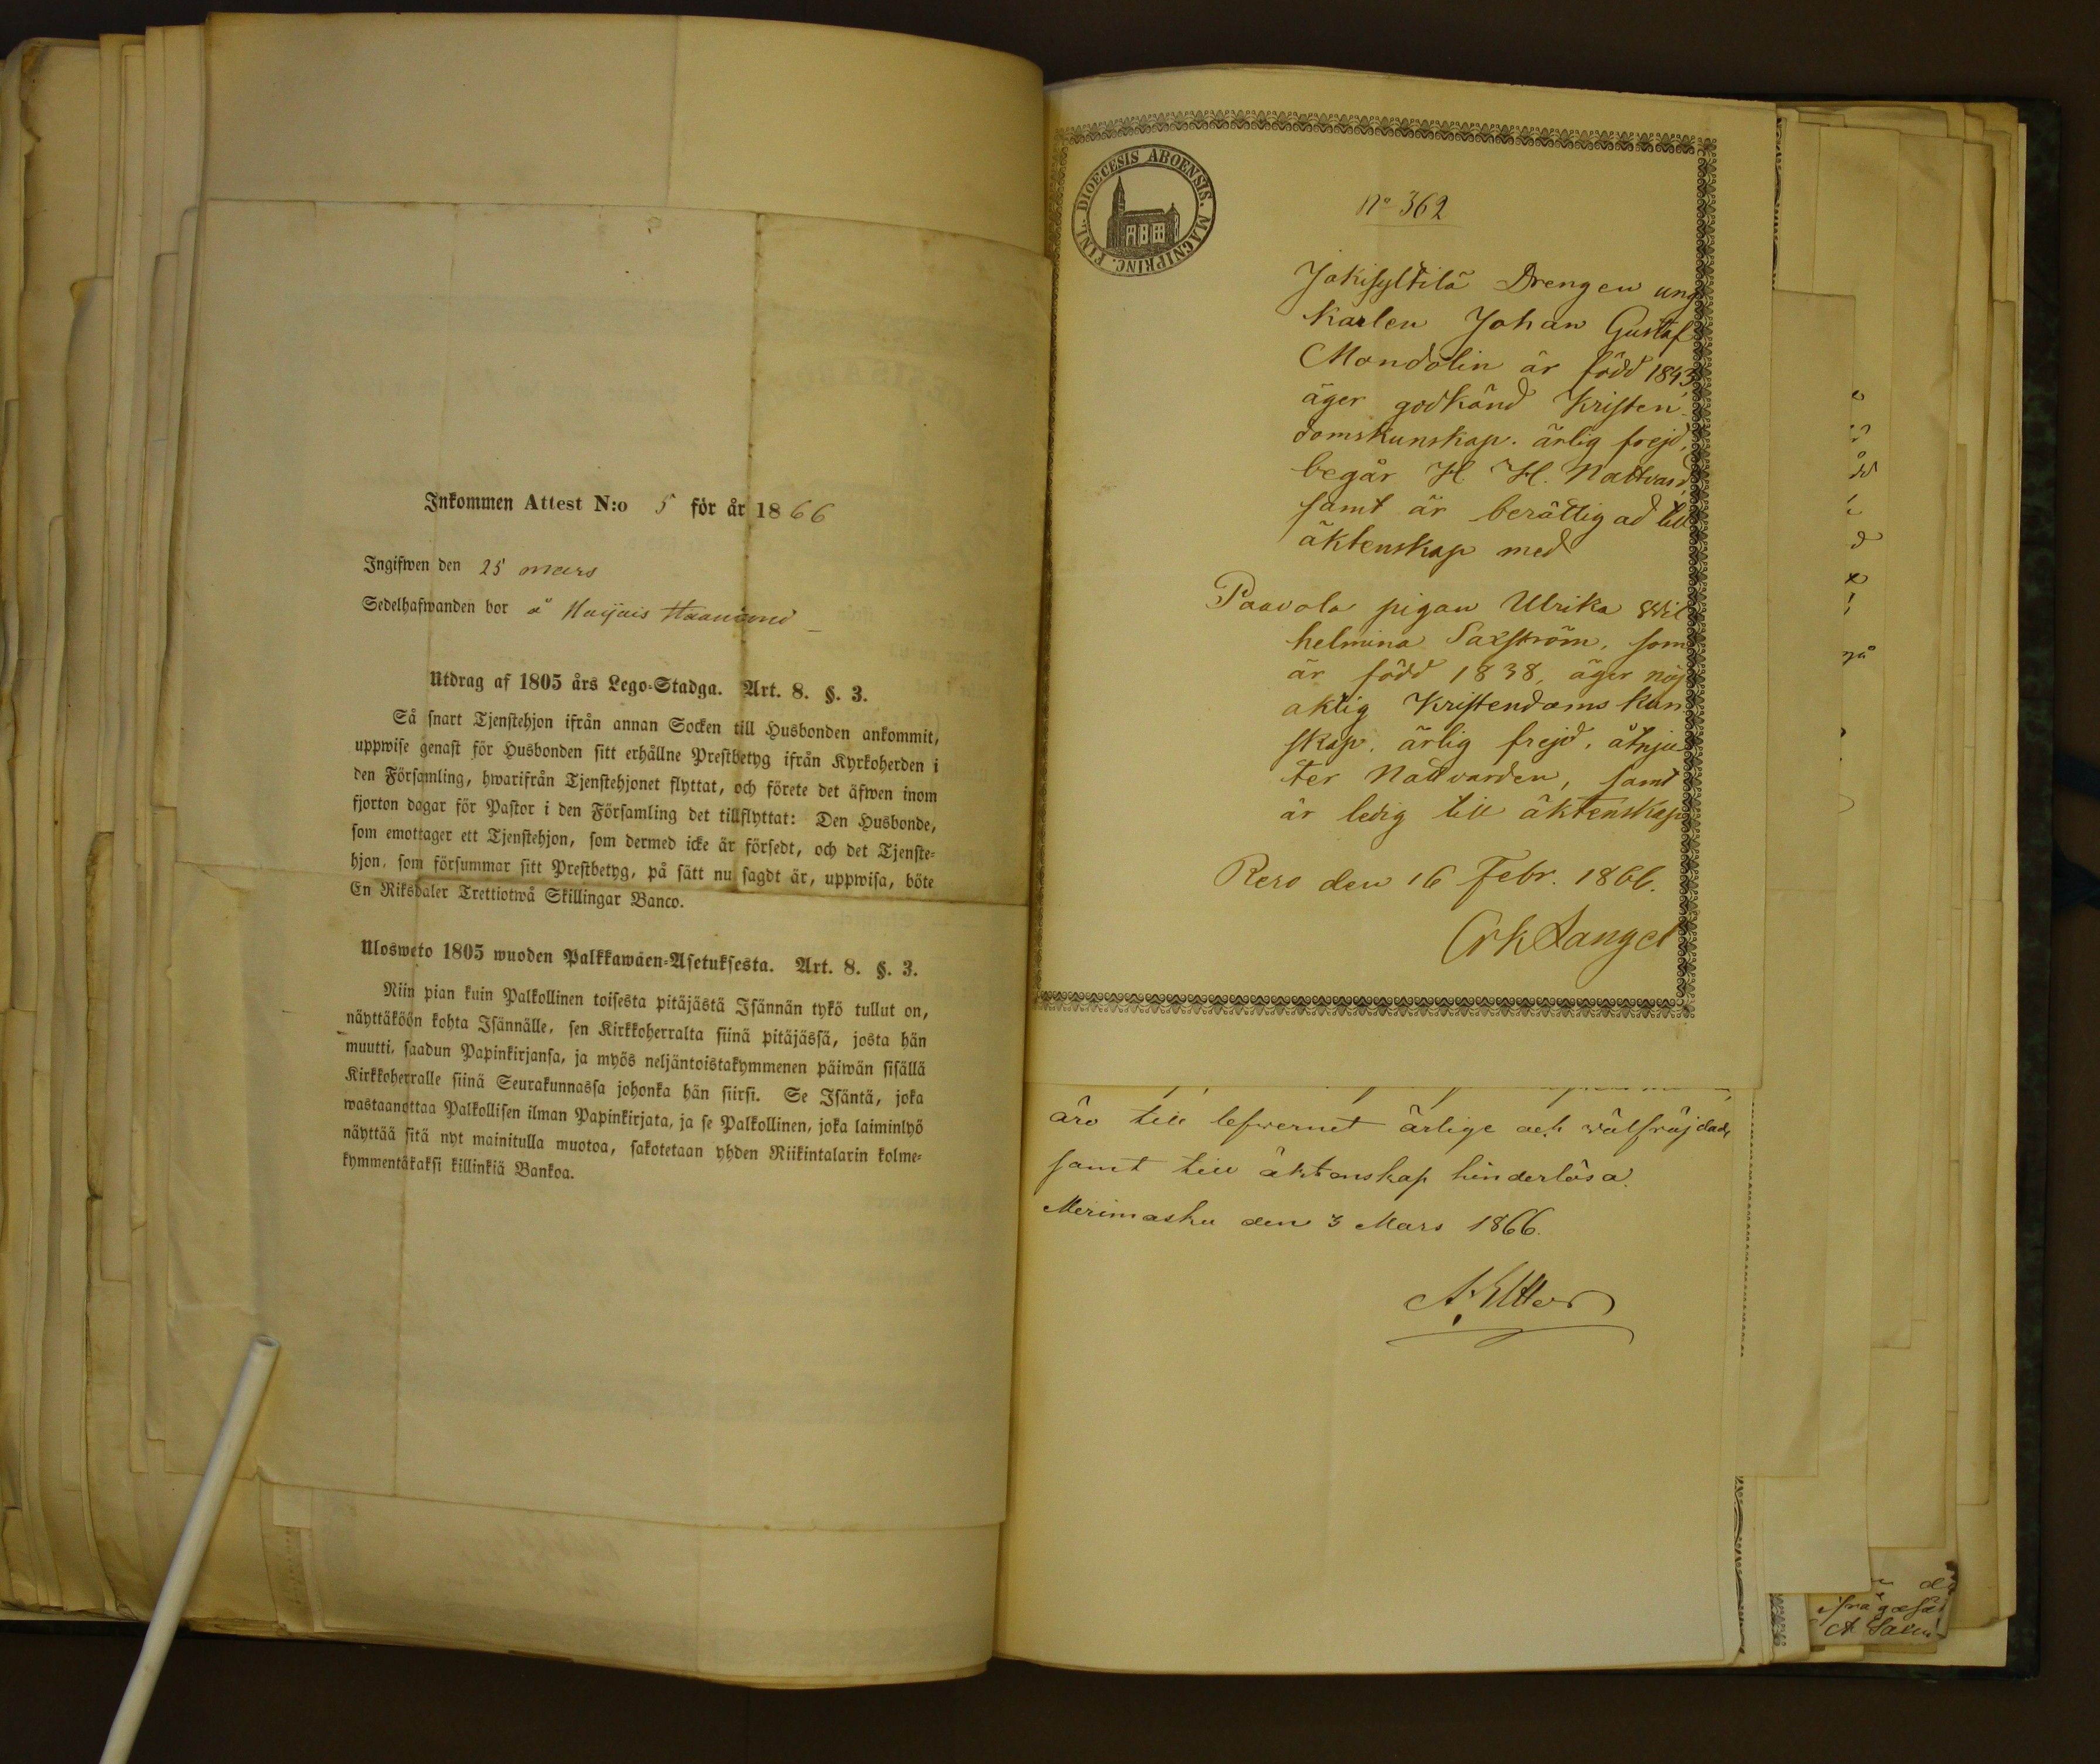 Inkommen Attest N:o 5 för år 1866
Ingifwen den 25 mars
Sedelhafwanden bor å
Utdrag af 1805 års Lego-Stadga. Art. 8. §. 3.
Så snart Tjenstehjon ifrån annan Socken till Husbonden ankommit,
uppwise genast för Husbonden sitt erhållne Prestbetyg ifrån Kyrkoherden i
den Församling, hwarifrån Tjenstehjonet flyttat, och förete det äfwen inom
fjorton dagar för Pastor i den Församling det tillflyttat: Den Husbonde,
som emottager ett Tjenstehjon, som dermed icke är försedt, och det Tjenste-
hjon, som försummar sitt Prestbetyg, på sätt nu sagdt är, uppwisa, böte
En Riksdaler Trettiotwå Skillingar Banco.
Ulosweto 1805 wuoden Palkkawäen-Asetuksesta. Art. 8. §. 3.
Niin pian kuin Palkollinen toisesta pitäjästä Isännän tykö tullut on,
näyttäköön kohta Isännälle, sen Kirkkoherralta siinä pitäjässä, josta hän
muutti, saadun Papinkirjansa, ja myös neljäntoistakymmenen päiwän sisällä
Kirkkoherralle siinä Seurakunnassa johonka hän siirsi. Se Isäntä, joka
wastaanottaa Palkollisen ilman Papinkirjata, ja se Palkollinen, joka laiminlyö
näyttää sitä nyt mainitulla muotoa, sakotetaan yhden Riikintalarin kolme-
kymmentäkaksi killinkiä Bankoa.
FINL. DIOECESIS ABOENSIS. MAGNIPRINC.
No 362
Jokisyltilä Drengen ung
karlen Johan Gustaf
Mandolin är född 1843
äger godkänd Kristen-
domskunskap. ärlig frejd,
begår H. H. Nattvard,
samt är berättigad till
äktenskap med
Paavola pigan Ulrika Wil
helmina Saxström, som
är född 1838, äger nöj
aktig Kristendoms kun
skap, ärlig frejd, åtnju
ter Nattvarden, samt
är ledig till äktenskap
Reso den 16 Febr. 1866.
äro till lefvernet ärlige och wälfräjdade
samt till äktenskap hinderlösa.
Merimasku den 3 Mars 1866.